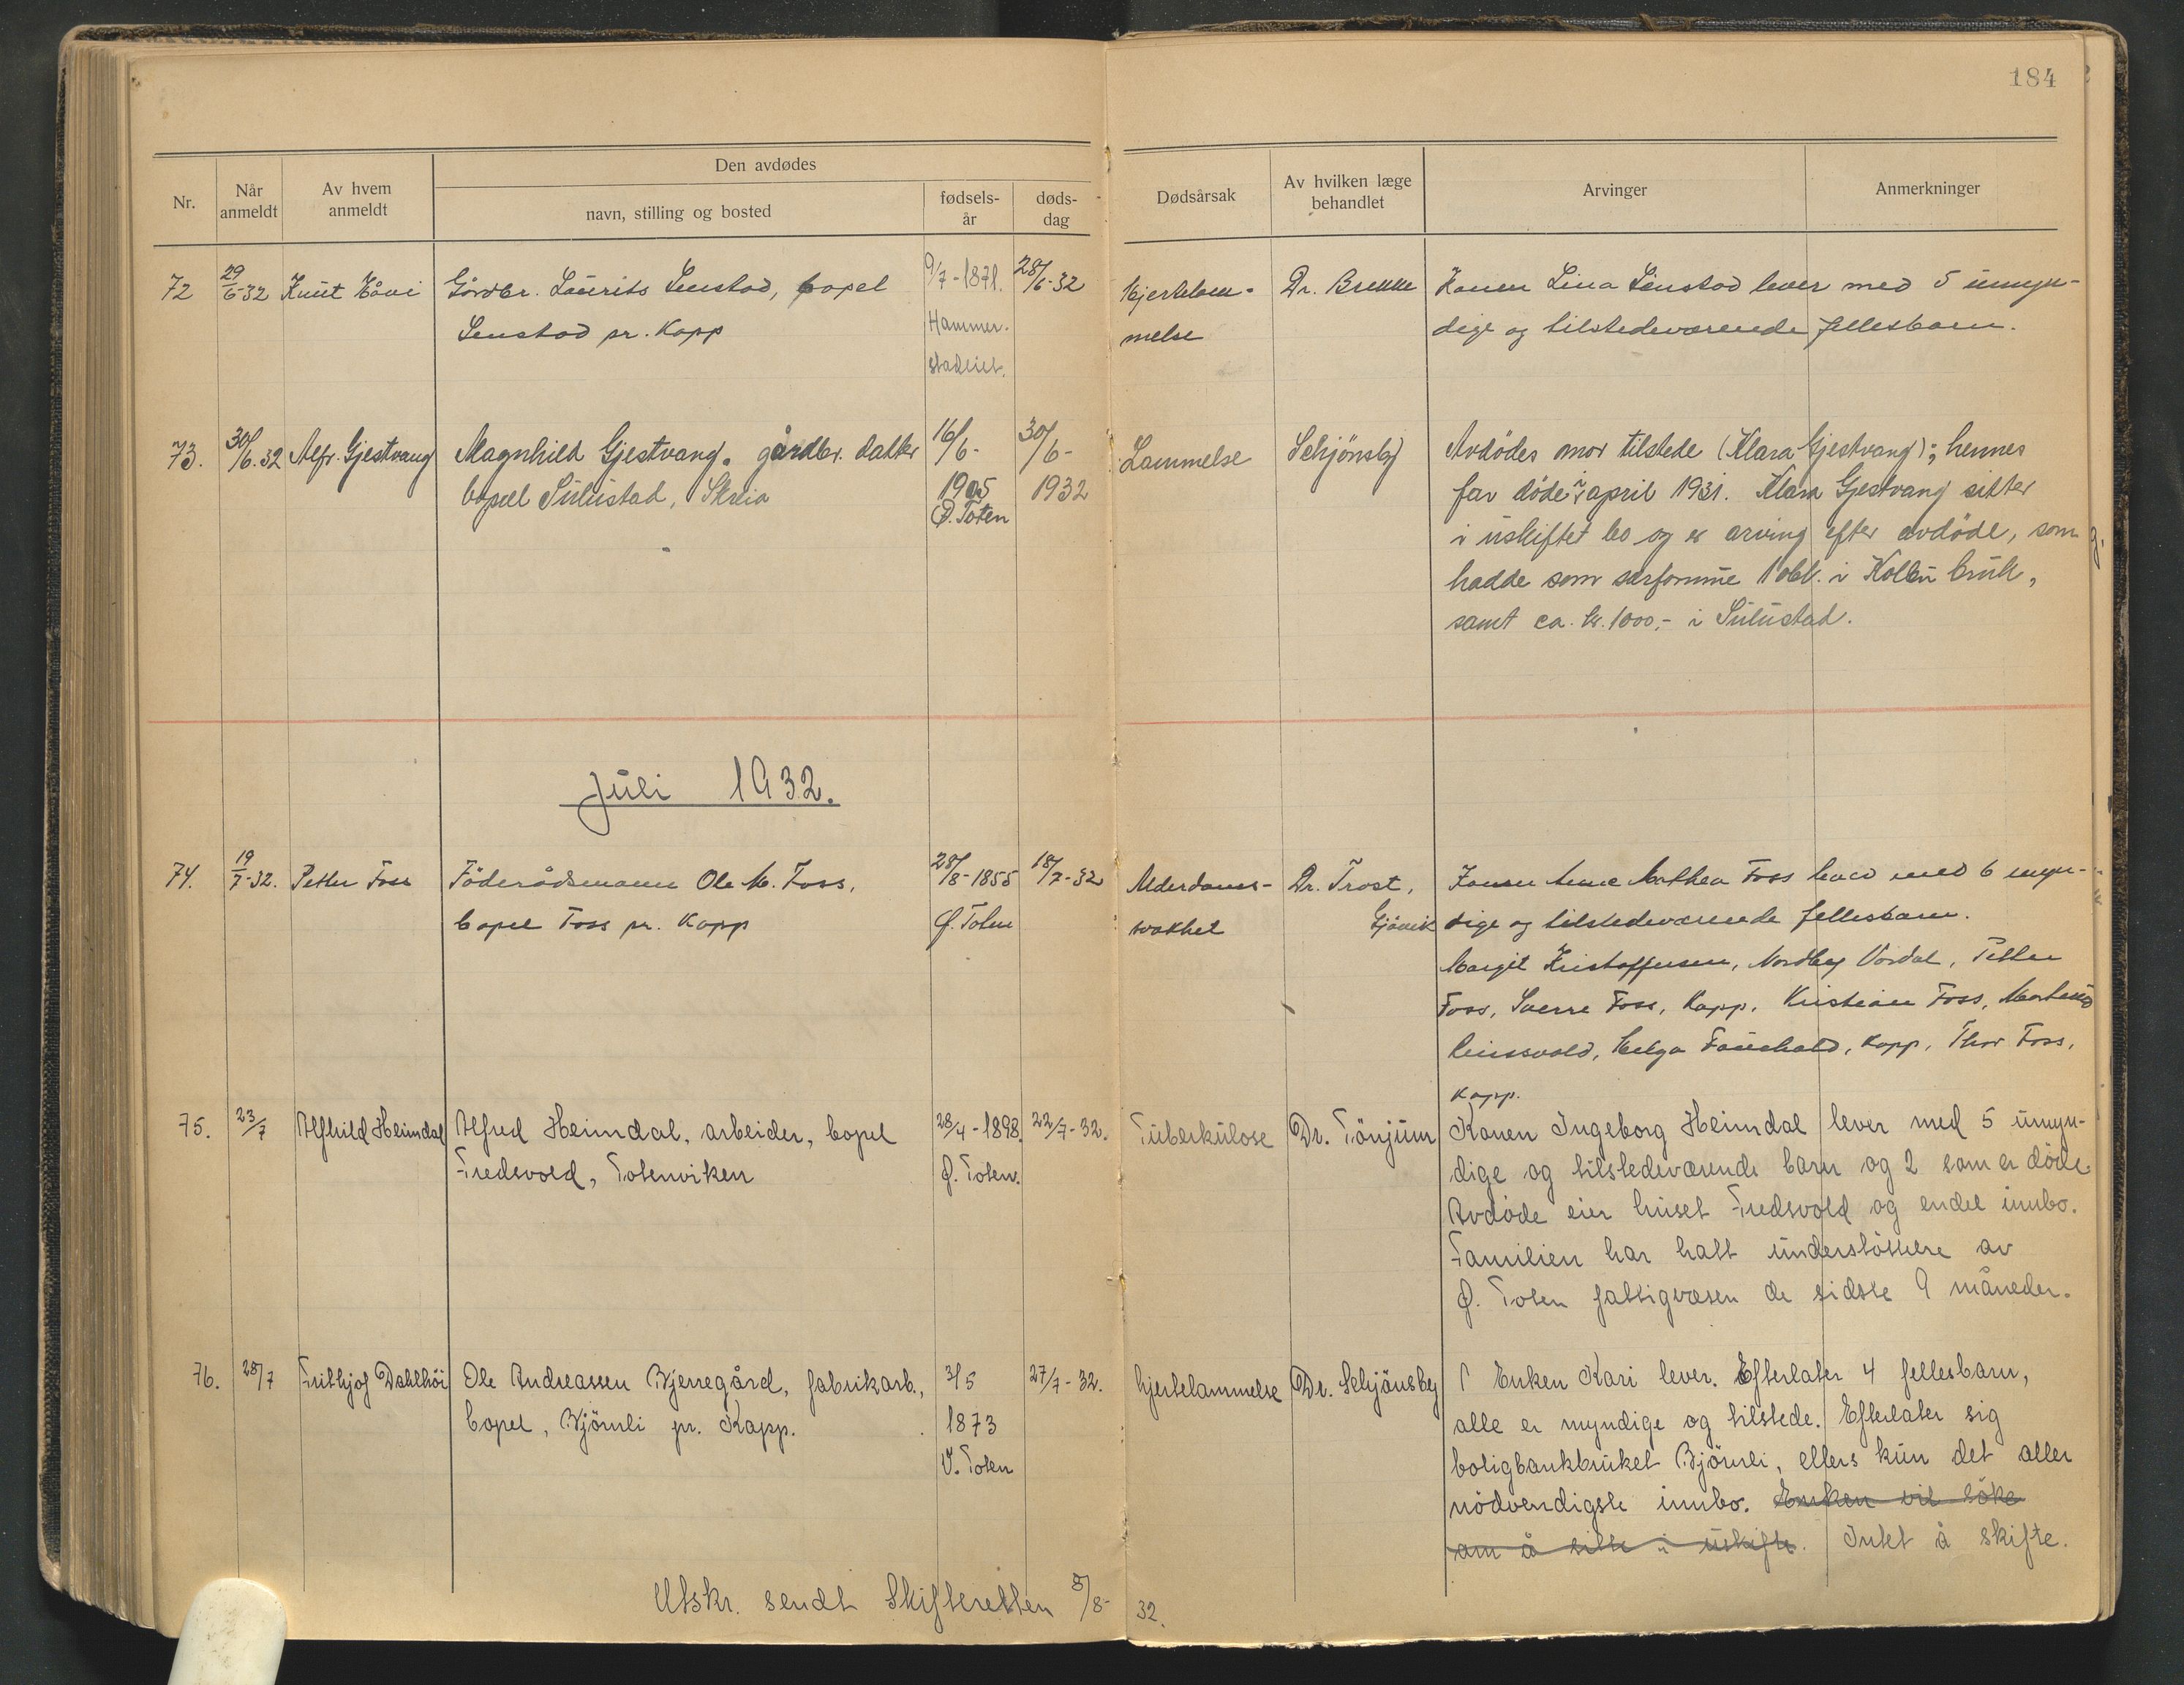 184
Den avdødes
Nr.
Når anmeldt
Av hvem anmeldt
navn, stilling og bosted
fødsels-år
døds-dag
Dødsårsak
Av hvilken læge behandlet
Arvinger
Anmerkninger
72 29/6-32 Knut Håvi Gårdbr. Laurits Senstad, bopel 9/7-1871. 28/6-32 Hjertelam- Dr. Brekke Konen Lina Senstad lever med 5 umyn-
Senstad pr. Kapp Hammer- melse dige og tilstedeværende fellesbarn.
stadeiet.
73. 30/6.32 Alfr. Gjestvang Magnhild Gjestvang. gårdbr. datter 16/6- 30/6- Lammelse Schjönsby Avdödes mor tilstede (Klara Gjestvang); hennes
bopel Sulustad, Skreia 1905 1932 far döde i april 1931. Klara Gjestvang sitter
Ø. Toten i uskiftet bo og er arving efter avdöde, som
hadde som særformue 1 obl. i Kolbu bruk,
samt ca. kr. 1000,- i Sulustad.
Juli 1932.
74. 19/7-32. Petter Foss Föderådsmann Ole M. Foss, 28/8-1855 18/7-32 Alderdoms- Dr. Trost, Konen Anne Mathea Foss lever med 6 myn-
bopel Foss pr. Kapp Ø. Toten svakhet Gjövik dige og tilstedeværende fellesbarn.
Margit Kristoffersen, Nordby Vardal, Petter
Foss, Sverre Foss, Kapp, Kristian Foss,
Helga Fauchald, Kapp, Thor Foss,
Kapp.
75. 23/7 Alfhild Heimdal Alfred Heimdal, arbeider, bopel 28/4-1898. 22/7-32. Tuberkulose Dr. Tönjum Konen Ingeborg Heimdal lever med 5 umyn-
Fredsvold, Totenviken Ø. Toten. dige og tilstedeværende barn og 2 som er döde.
Avdöde eier huset Fredsvold og endel innbo.
Familien har hatt understöttelse av
Ø. Toten fattigvæsen de sidste 9 måneder.
76. 28/7 Frithjof Dahlhöi Ole Andreassen Bjerregård, fabrikarb., 3/5 27/7-32. hjertelammelse Dr. Schjönsby Enken Kari lever. Efterlater 4 fellesbarn,
bopel, Bjömli pr. Kapp. 1873 alle er myndige og tilstede. Efterlater sig
V. Toten boligbankbruket Bjömli, ellers kun det aller
nödvendigste innbo. Enken vil söke
om å sitte i uskifte. Intet å skifte.
Utskr. sendt Skifteretten 8/8-32.